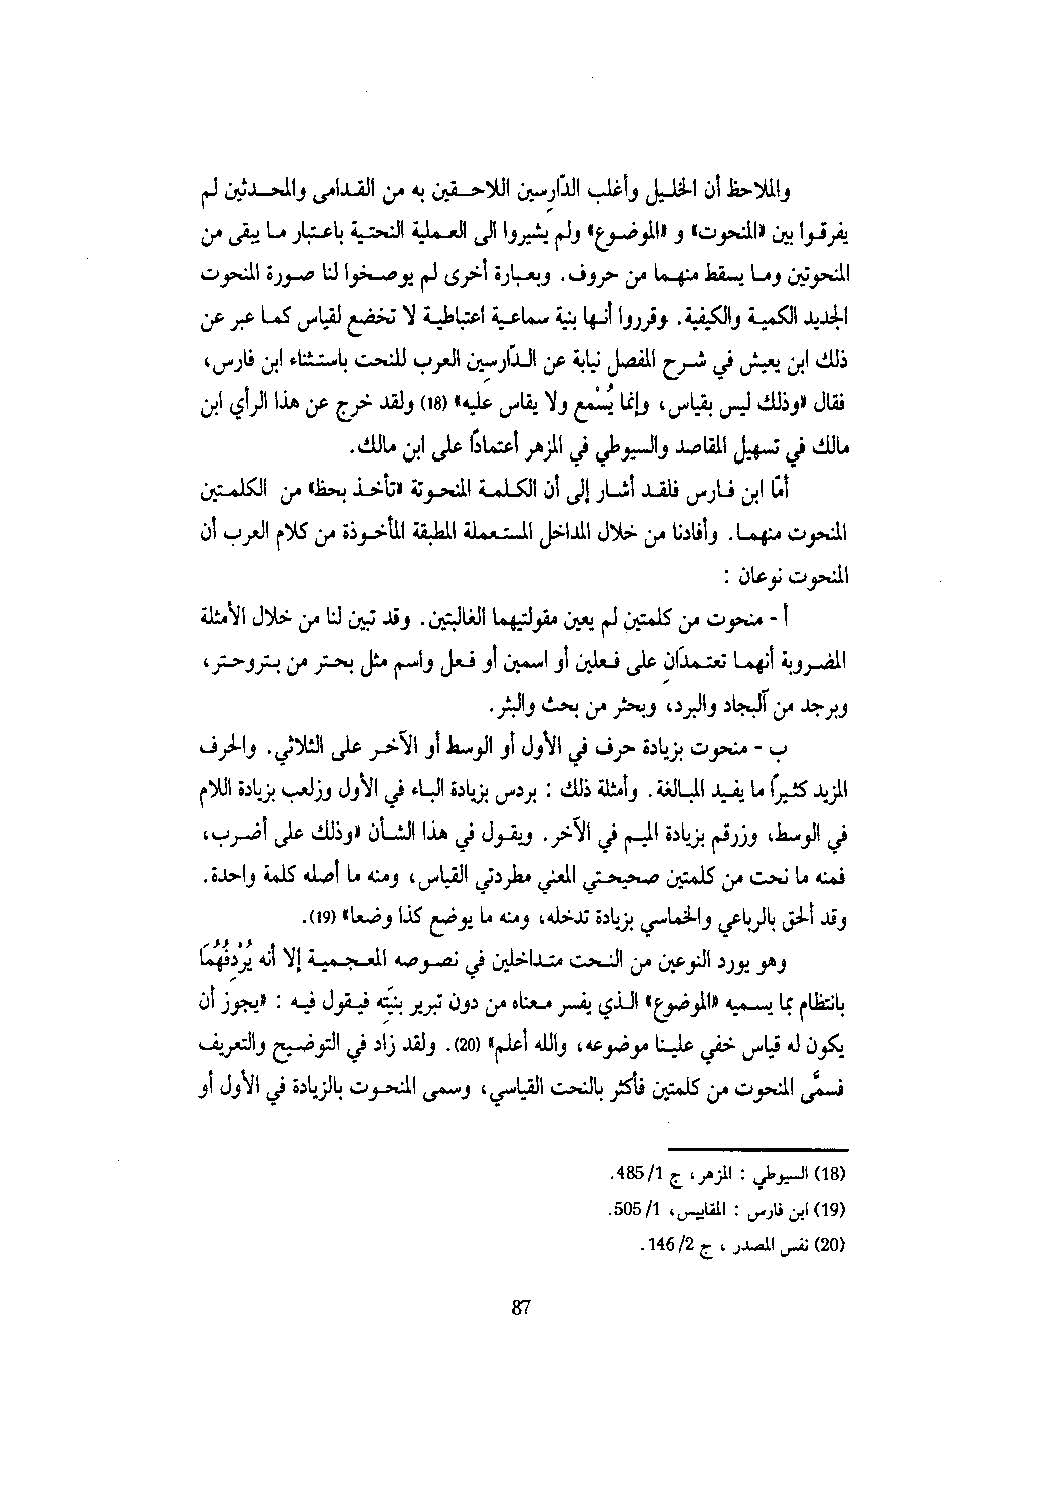 والملاحظ أن الخليل وأغلب الدّارسين اللاحقين به من القدامى والمحدثين لم
يفرقوا بين «المنحوت» و «الموضوع» ولم يشيروا الى العملية النحتية باعتبار ما يبقى من
المنحوتين وما يسقط منهما من حروف. وبعبارة أخرى لم يوضحوا لنا صورة المنحوت
الجديد الكمية والكيفية. وقرروا أنها بنية سماعية اعتباطية لا تخضع لقياس كما عبر عن
ذلك ابن يعيش في شرح المفصل نيابة عن الدّارسين العرب للنحت باستثناء ابن فارس،
فقال «وذلك ليس بقياس، وإنما يُسْمع ولا يقاس عليه» (18) ولقد خرج عن هذا الرأي ابن
مالك في تسهيل المقاصد والسيوطي في المزهر أعتمادًا على ابن مالك.
أمّا ابن فارس فلقد أشار إلى أن الكلمة المنحوتة «تأخذ بحظ» من الكلمتين
المنحوت منهما. وأفادنا من خلال المداخل المستعملة المطبقة المأخوذة من كلام العرب أن
المنحوت نوعان :
أ - منحوت من كلمتين لم يعين مقولتيهما الغالبتين. وقد تبين لنا من خلال الأمثلة
المضروبة أنهما تعتمدَانِ على فعلين أو اسمين أو فعل واسم مثل بحتر من بتروحتر،
وبرجد من آلبجاد والبرد، وبحثر من بحث والبثر.
ب - منحوت بزيادة حرف في الأول أو الوسط أو الآخر على الثلاثي. والحرف
المزيد كثيرًا ما يفيد المبالغة. وأمثلة ذلك : بردس بزيادة الباء في الأول وزلعب بزيادة اللام
في الوسط، وزرقم بزيادة الميم في الآخر. ويقول في هذا الشأن «وذلك على أضرب،
فمنه ما نحت من كلمتين صحيحتي المعني مطردتي القياس، ومنه ما أصله كلمة واحدة.
وقد ألحق بالرباعي والخماسي بزيادة تدخله، ومنه ما يوضع كذا وضعا» (19).
وهو يورد النوعين من النحت متداخلين في نصوصه المعجمية إلا أنه يُرْدِفُهُمَا
بانتظام بما يسميه «الموضوع» الذي يفسر معناه من دون تبرير بنيَتِه فيقول فيه : «يجوز أن
يكون له قياس خفي علينا موضوعه، والله أعلم» (20). ولقد زاد في التوضيح والتعريف
فسمَّى المنحوت من كلمتين فأكثر بالنحت القياسي، وسمى المنحوت بالزيادة في الأول أو
(18) السيوطي : المزهر، ج 1/ 485.
(19) ابن فارس : المقاييس، 1/ 505.
(20) نفس المصدر ، ج 2/ 146.
87